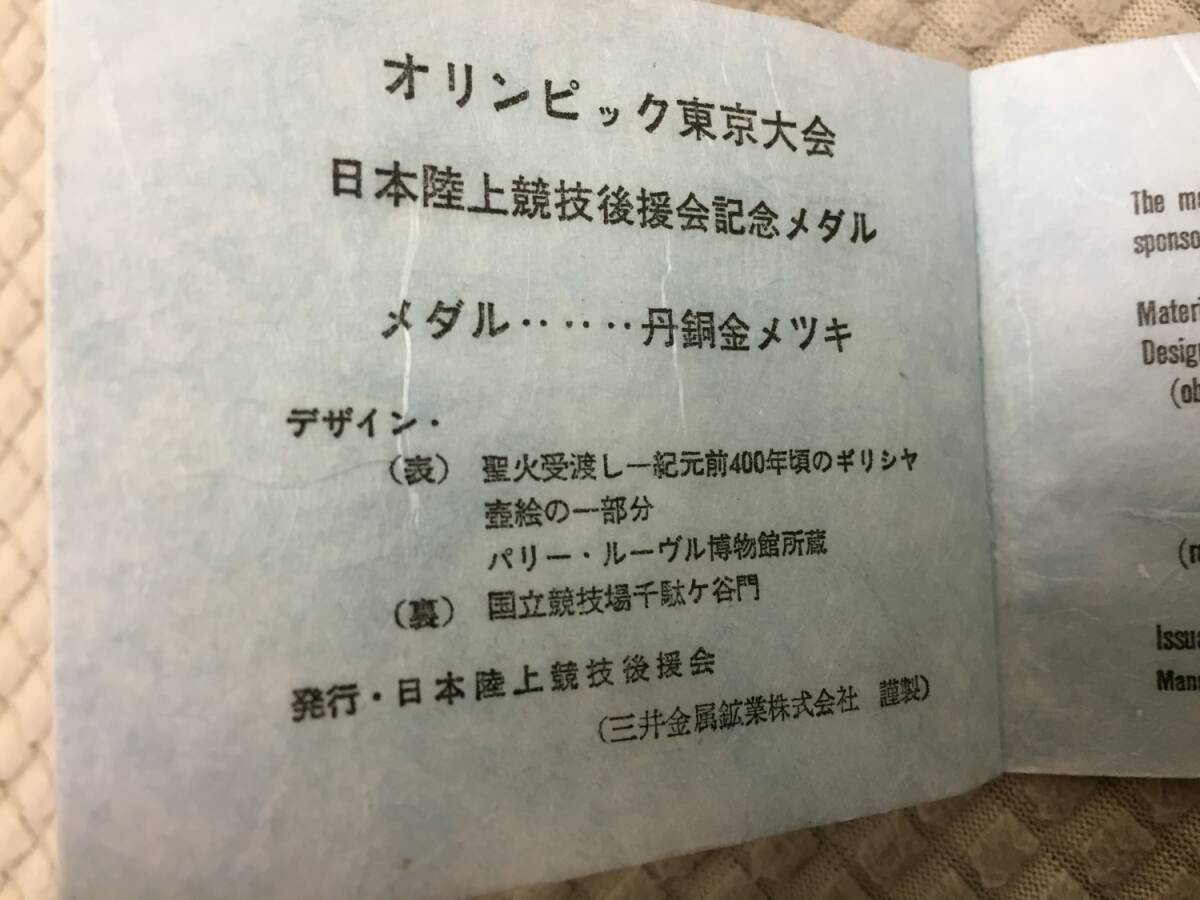 オリンピック東京大会
日本陸上競技後援会記念メダル
メダル‥‥‥丹銅金メツキ
デザイン・
（表） 聖火受渡し―紀元前400年頃のギリシヤ
壺絵の一部分
パリー・ルーヴル博物館所蔵
（裏） 国立競技場千駄ケ谷門
発行・日本陸上競技後援会
（三井金属鉱業株式会社 謹製）
The